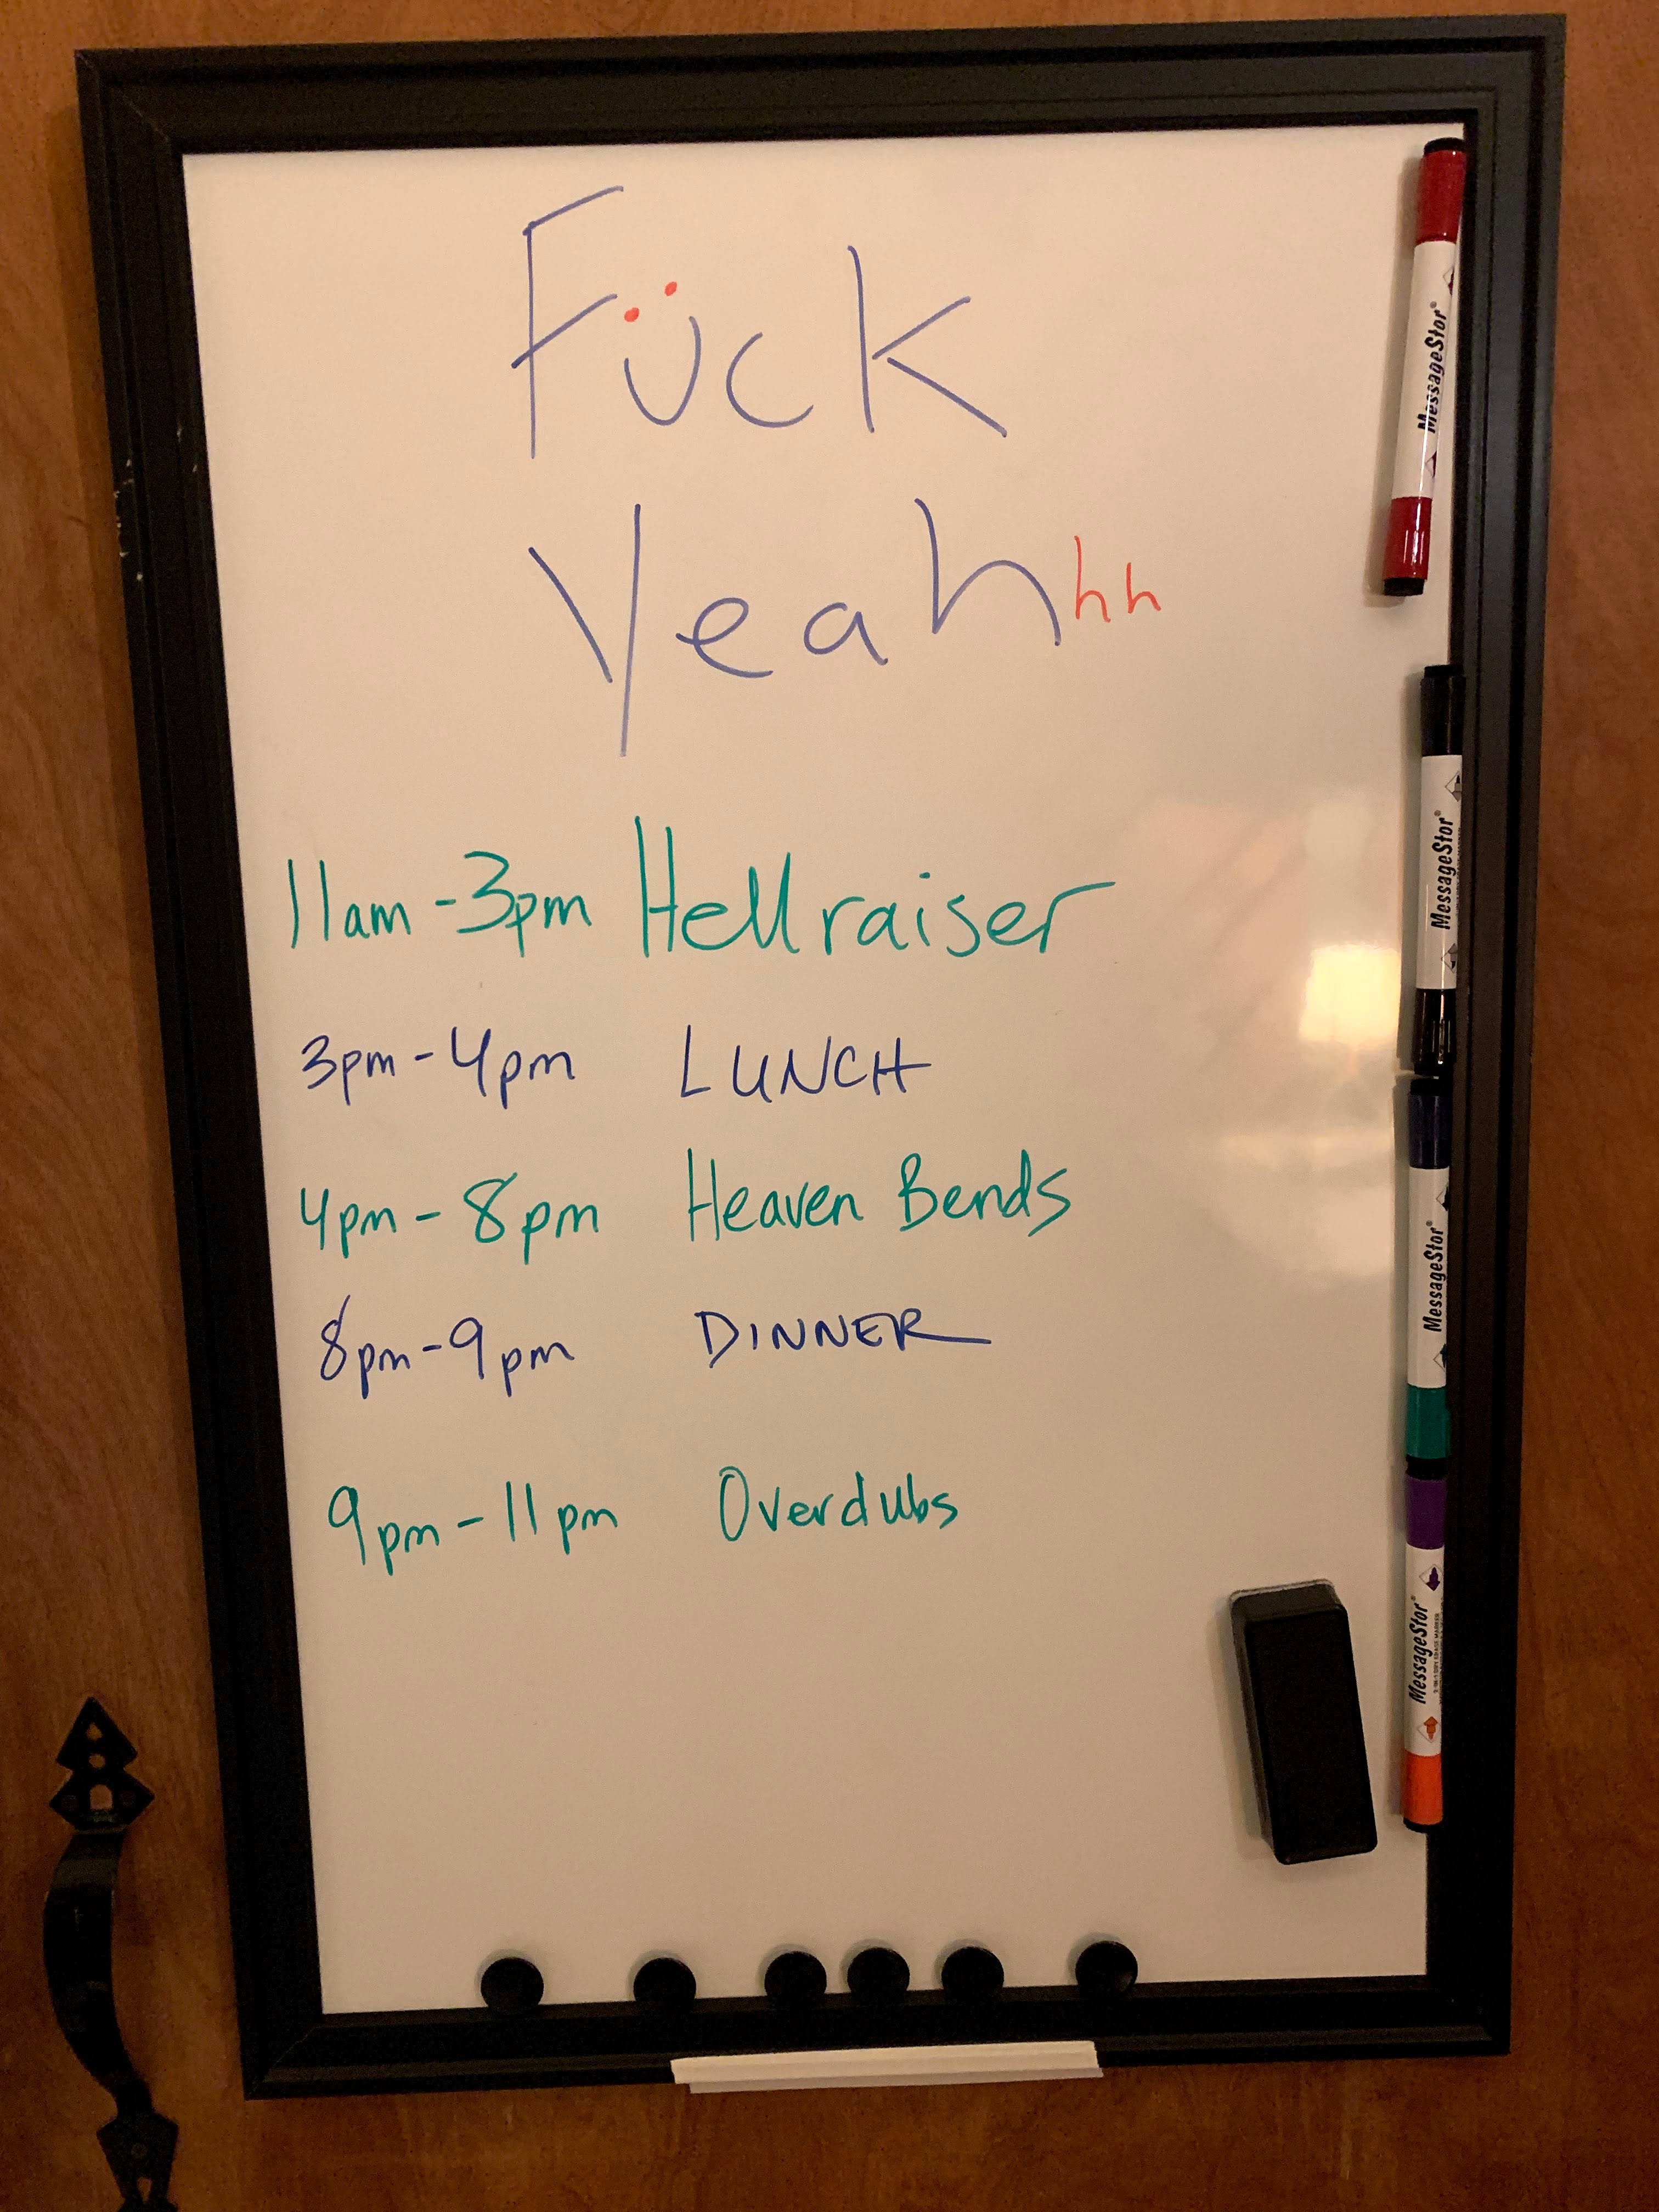 Fück
Yeahhh
11am - 3pm Hellraiser
3pm - 4pm LUNCH
4pm - 8pm Heaven Bends
8pm - 9pm DINNER
9pm - 11pm Overdubs
MessageStor®
MessageStor®
MessageStor®
MessageStor®